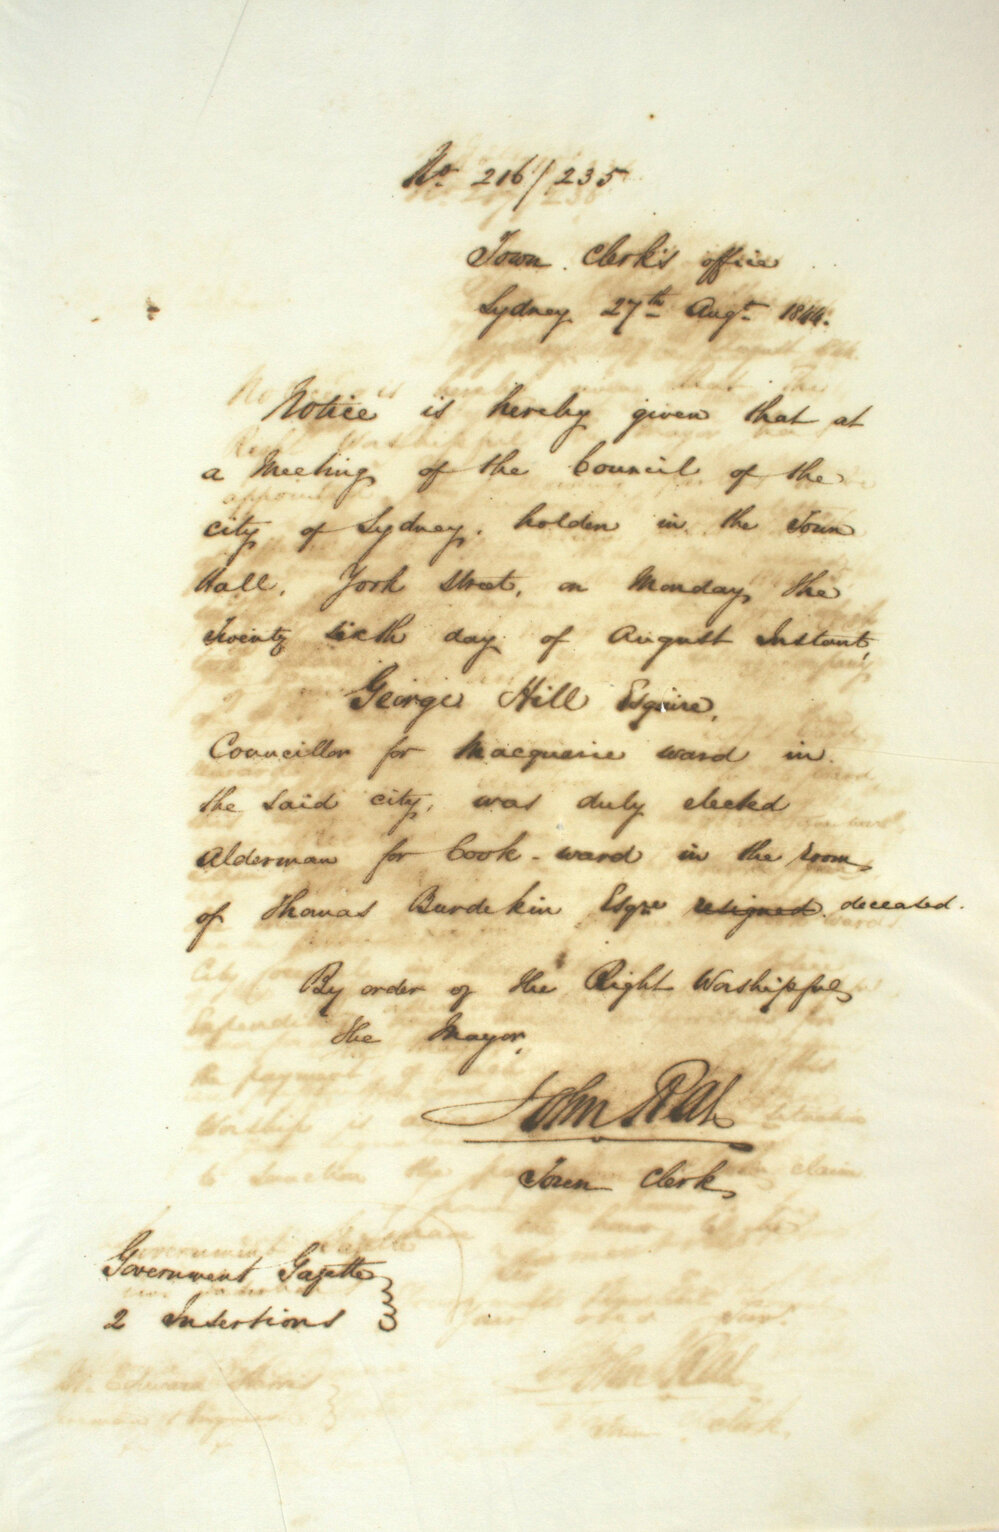 No. 216/235
Town Clerk's office
Sydney 27th Augt. 1844.
Notice is hereby given that at
a Meeting of the Council of the
city of Sydney, holden in the Town
Hall, York Street, on Monday the
Twenty sixth day of August Instant,
George Hill Esquire,
Councillor for Macquarie ward in
the said city, was duly elected
Alderman for Cook-ward in the room
of Thomas Burdekin Esqre resigned deceased.
By order of the Right Worshipful
the Mayor,
John Rae
Town Clerk
Government Gazette
2 Insertions